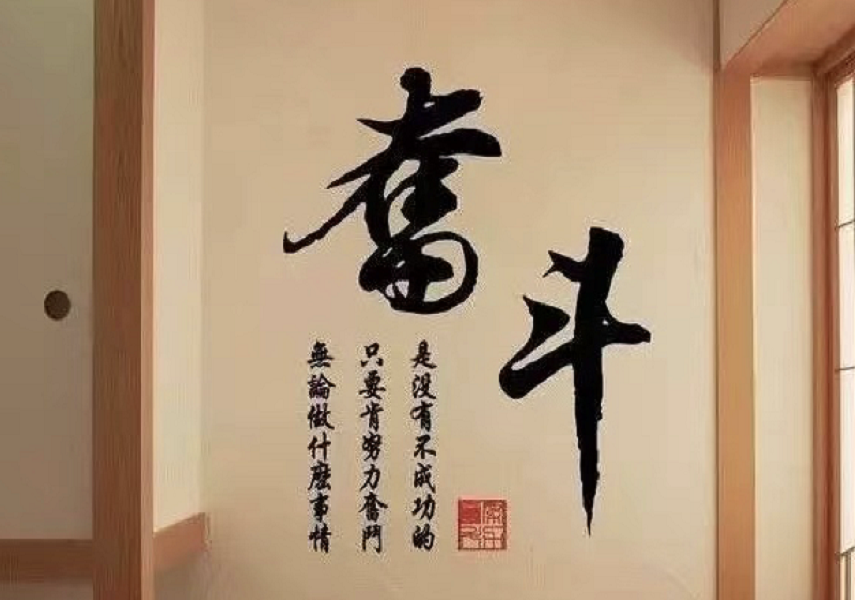 奮斗
無論做什麽事情
只要肯努力奮鬥
是没有不成功的